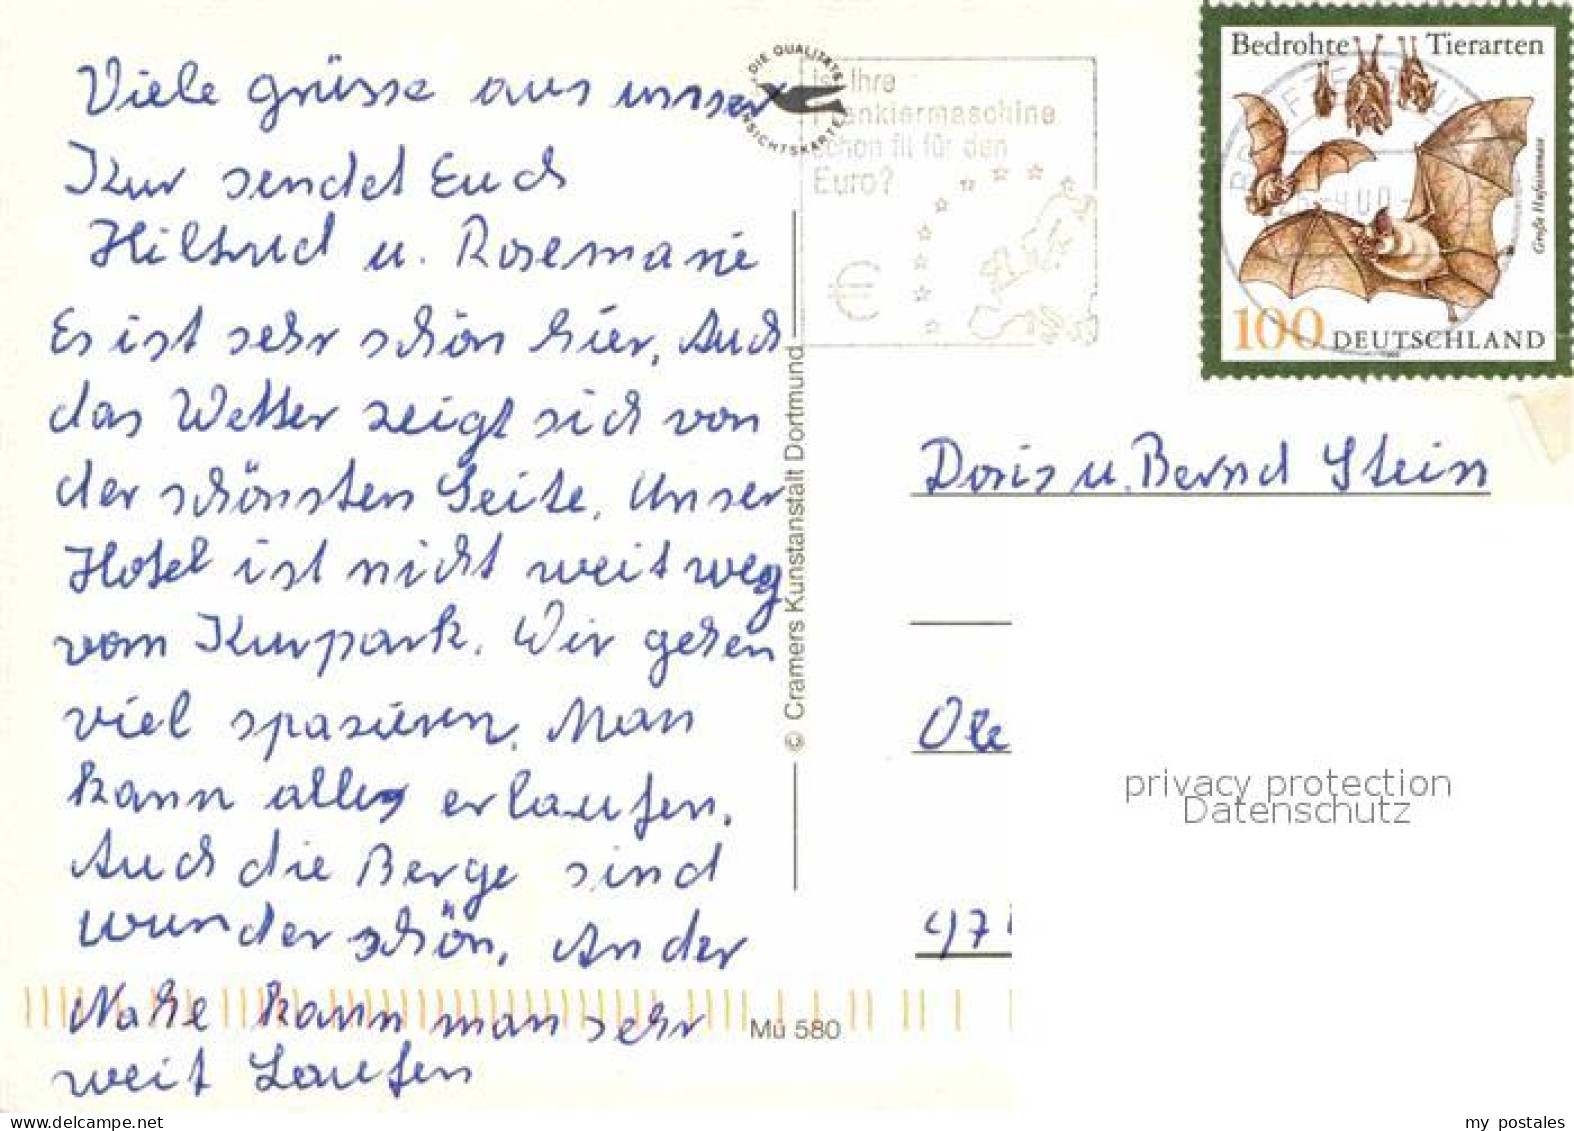 Viele grüsse aus unser
Kur sendet Euch
Hiltrud u. Rosemarie
Es ist sehr schön hier, Auch
das Wetter zeigt sich von
der schönsten Seite. Unser
Hotel ist nicht weit weg
vom Kurpark. Wir gehen
viel spazieren. Man
kann alles erlaufen.
Auch die Berge sind
wunderschön. An der
Nahe kann man sehr
weit Laufen
DIE QUALITÄTS
ANSICHTSKARTE
Ist Ihre
Frankiermaschine
schon fit für den
Euro?
€
Bedrohte Tierarten
Große Hufeisennase
100 DEUTSCHLAND
© Cramers Kunstanstalt Dortmund
Mü 580
Doris u. Bernd Stein
97
privacy protection
Datenschutz
my postales